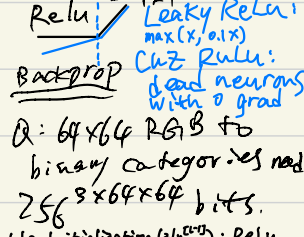 Relu
Leaky ReLu:
max(x, 0.1x)
Cuz RuLu:
dead neurons
with 0 grad
Backprop
Q: 64x64 RGB to
binary categories need
256^3x64x64 bits.
Relu